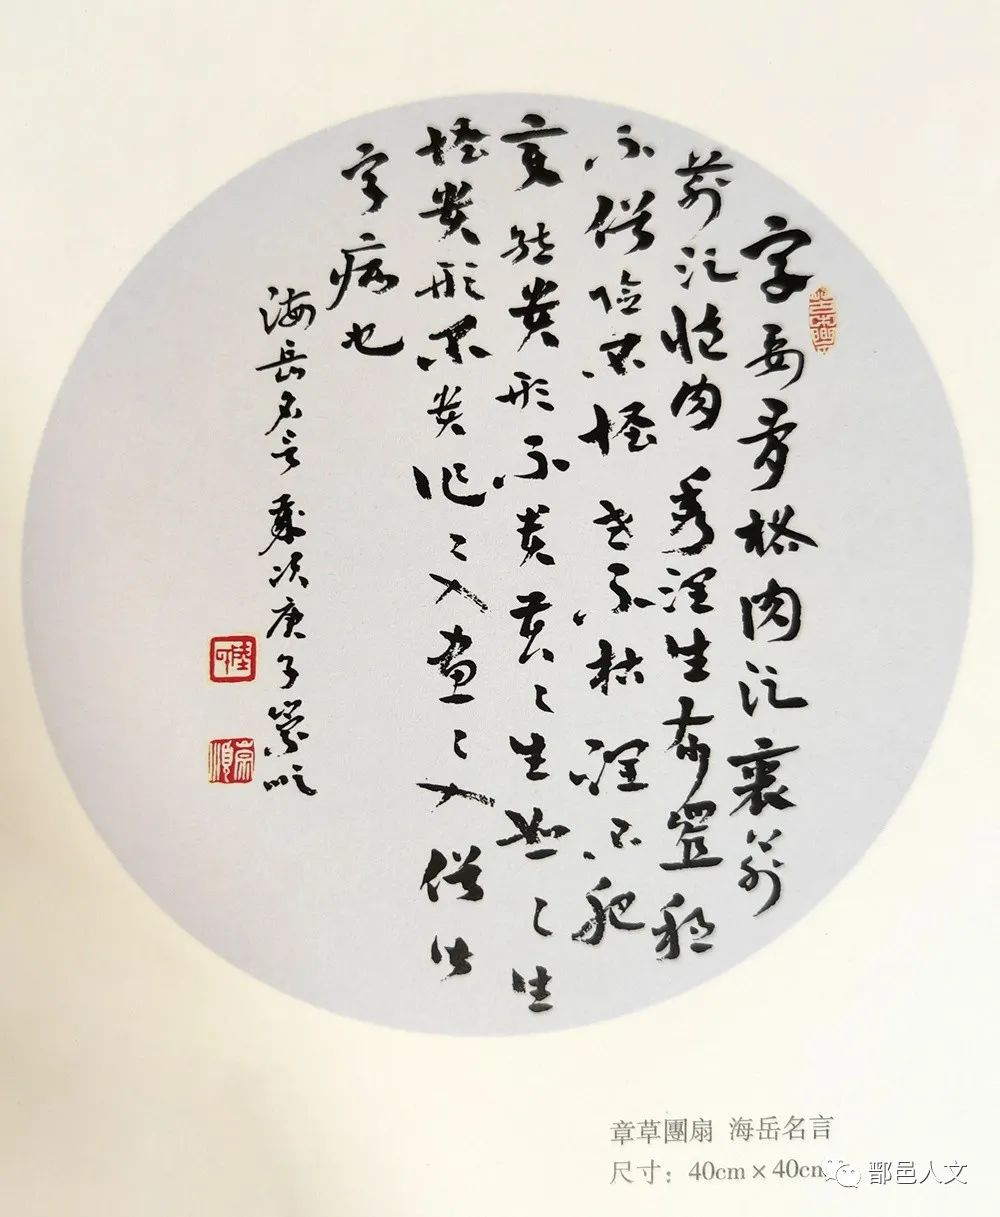 字要骨格肉須裹筋
筋須藏肉秀潤生布置穩
不俗險不怪老不枯潤不肥
變態貴形不貴苦〻生怒〻生
怪貴形不貴作〻入畫〻入俗皆
字病也
海岳名言 歲次庚子崇順
崇順
章草團扇 海岳名言
尺寸：40cm×40cm
鄞邑人文